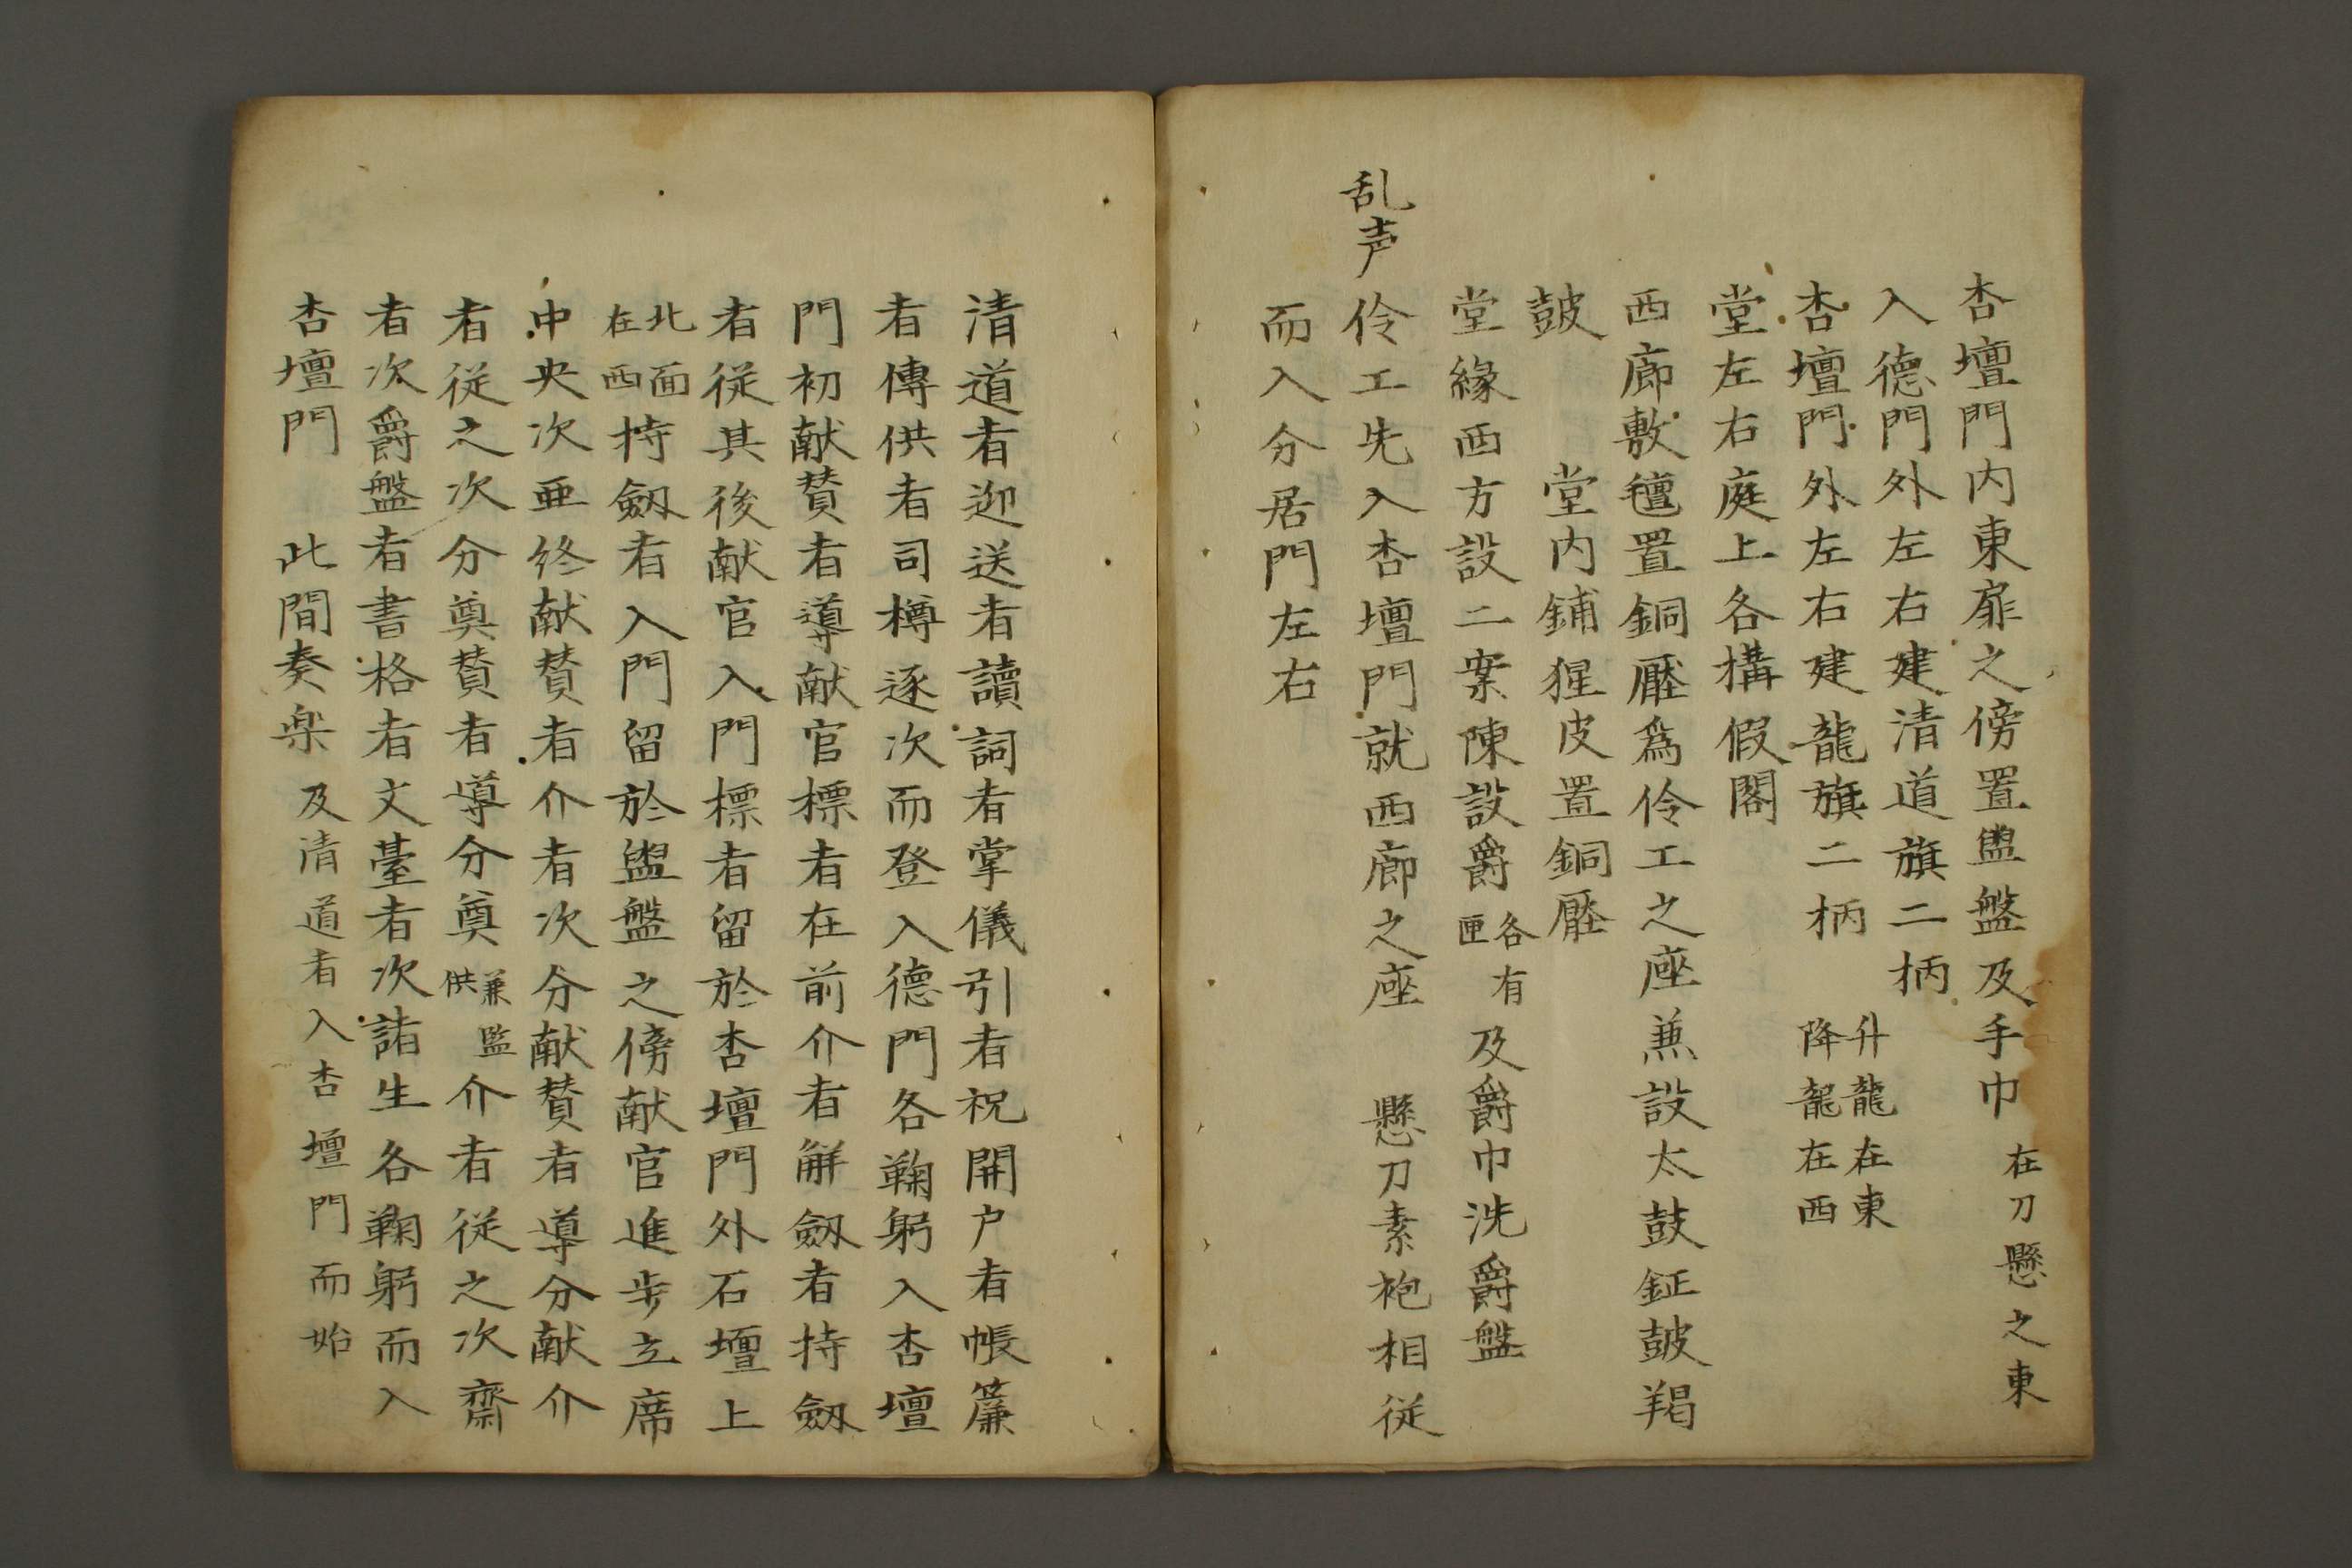 杏壇門内東扉之傍置盥盤及手巾 在刀懸之東
入德門外左右建清道旗二柄
杏壇門外左右建龍旗二柄 升龍在東 降龍在西
堂左右庭上各構假閣
西廊敷氊置銅壓爲伶工之座兼設太鼓鉦皷羯
皷 堂内鋪猩皮置銅壓
堂縁西方設二案陳設爵 各有匣 及爵巾洗爵盤
乱声 伶工先入杏壇門就西廊之座 懸刀素袍相従
而入分居門左右
清道者迎送者讀詞者掌儀引者祝開户者帳簾
者傳供者司樽逐次而登入德門各鞠躬入杏壇
門初献賛者導献官標者在前介者解劔者持劔
者従其後献官入門標者留於杏壇門外石壇上
北面在西 持劔者入門留於盥盤之傍献官進步立席
中央次亜終献賛者介者次分献賛者導分献介
者従之次分奠賛者導分奠 兼監供 介者従之次齋
者次爵盤者書格者文臺者次諸生各鞠躬而入
杏壇門 此間奏楽 及清道者入杏壇門而始